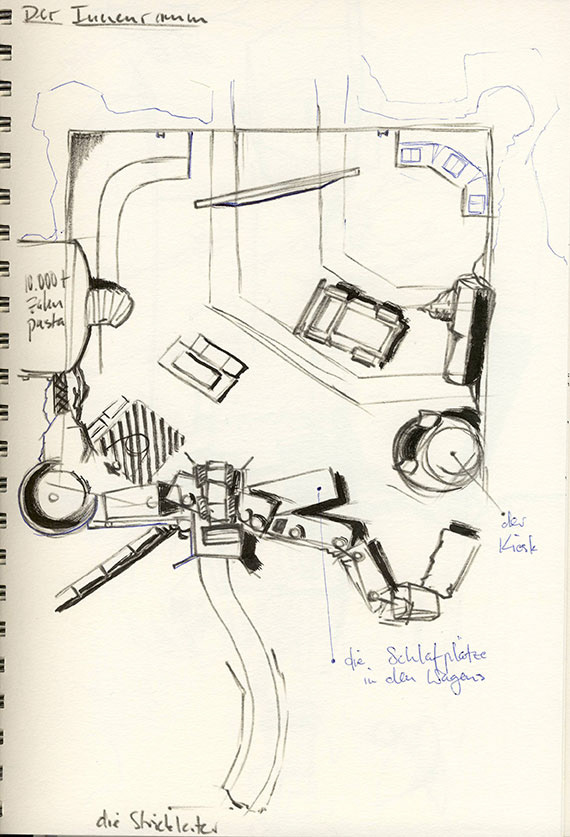 Der Innenraum
10.000+
Zahn
pasta
der
Kiosk
die Schlafplätze
in den Wagens
die Strickleiter